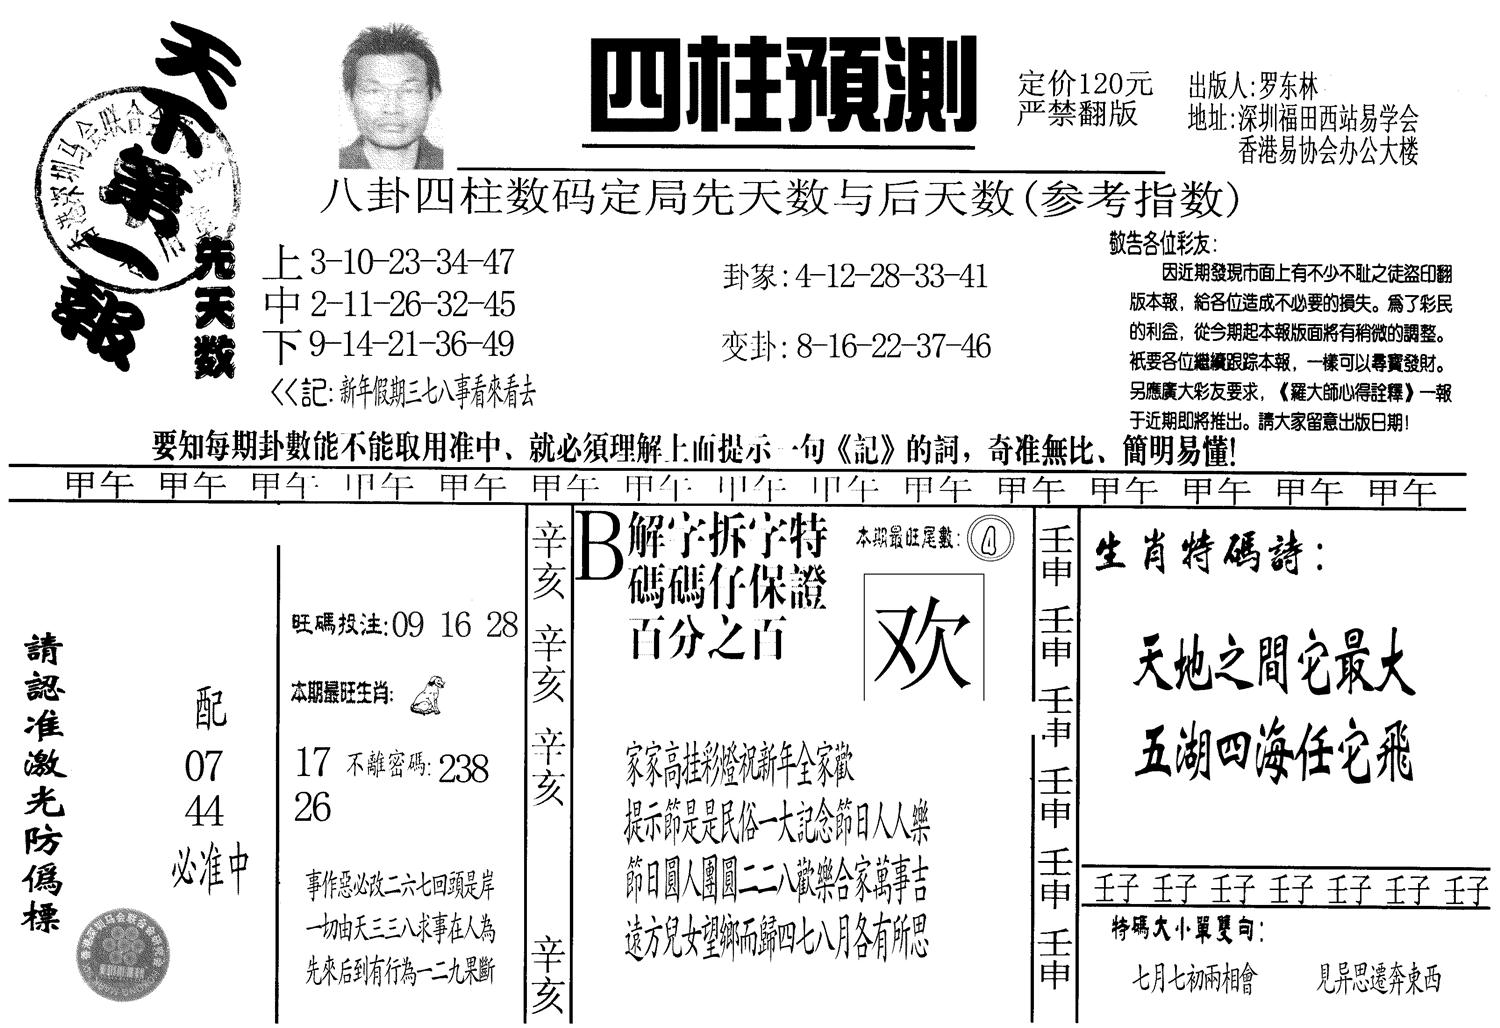 天下第一報
四柱預測
定价120元
严禁翻版
出版人:罗东林
地址:深圳福田西站易学会
香港易协会办公大楼
八卦四柱数码定局先天数与后天数(参考指数)
先天数
上 3-10-23-34-47
中 2-11-26-32-45
下 9-14-21-36-49
<<記:新年假期三七八事看來看去
卦象:4-12-28-33-41
变卦:8-16-22-37-46
敬告各位彩友:
因近期發現市面上有不少不耻之徒盜印翻
版本報，給各位造成不必要的損失。爲了彩民
的利益，從今期起本報版面將有稍微的調整。
衹要各位繼續跟踪本報，一樣可以尋寶發財。
另應廣大彩友要求，《羅大師心得詮釋》一報
于近期即將推出。請大家留意出版日期!
要知每期卦數能不能取用准中、就必須理解上面提示一句《記》的詞，奇准無比、簡明易懂!
甲午 甲午 甲午 甲午 甲午 甲午 甲午 甲午 甲午 甲午 甲午 甲午 甲午 甲午 甲午
請認准激光防僞標
配
07
44
必准中
旺碼投注:09 16 28
本期最旺生肖:
17 不離密碼:238
26
事作惡必改二六七回頭是岸
一切由天三三八求事在人為
先來后到有行為一二九果斷
辛亥 辛亥 辛亥 辛亥
B
解字拆字特
碼碼仔保證
百分之百
本期最旺尾數:
欢
家家高挂彩燈祝新年全家歡
提示節是是民俗一大記念節日人人樂
節日圓人團圓二二八歡樂合家萬事吉
遠方兒女望鄉而歸四七八月各有所思
壬申 壬申 壬申 壬申 壬申 壬申
生肖特碼詩:
天地之間它最大
五湖四海任它飛
壬子 壬子 壬子 壬子 壬子 壬子 壬子
特碼大小單雙句:
七月七初兩相會 見异思遷奔東西